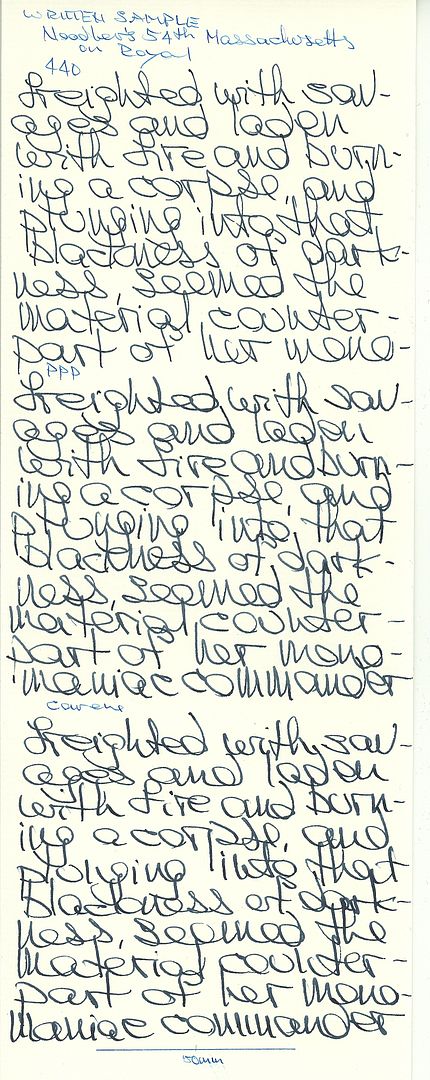 WRITTEN SAMPLE
Noodler's 54th Massachusetts
on Royal
440
freighted with sav-
ages and laden
with fire and burn-
ing a corpse, and
plunging into that
blackness of dark-
ness, seemed the
material counter-
part of her mono-
PPP
freighted with sav-
ages and laden
with fire and burn-
ing a corpse, and
plunging into that
blackness of dark-
ness, seemed the
material counter-
part of her mono-
maniac commander
freighted with sav-
ages and laden
with fire and burn-
ing a corpse, and
plunging into that
blackness of dark-
ness, seemed the
material counter-
part of her mono-
maniac commander
50mm